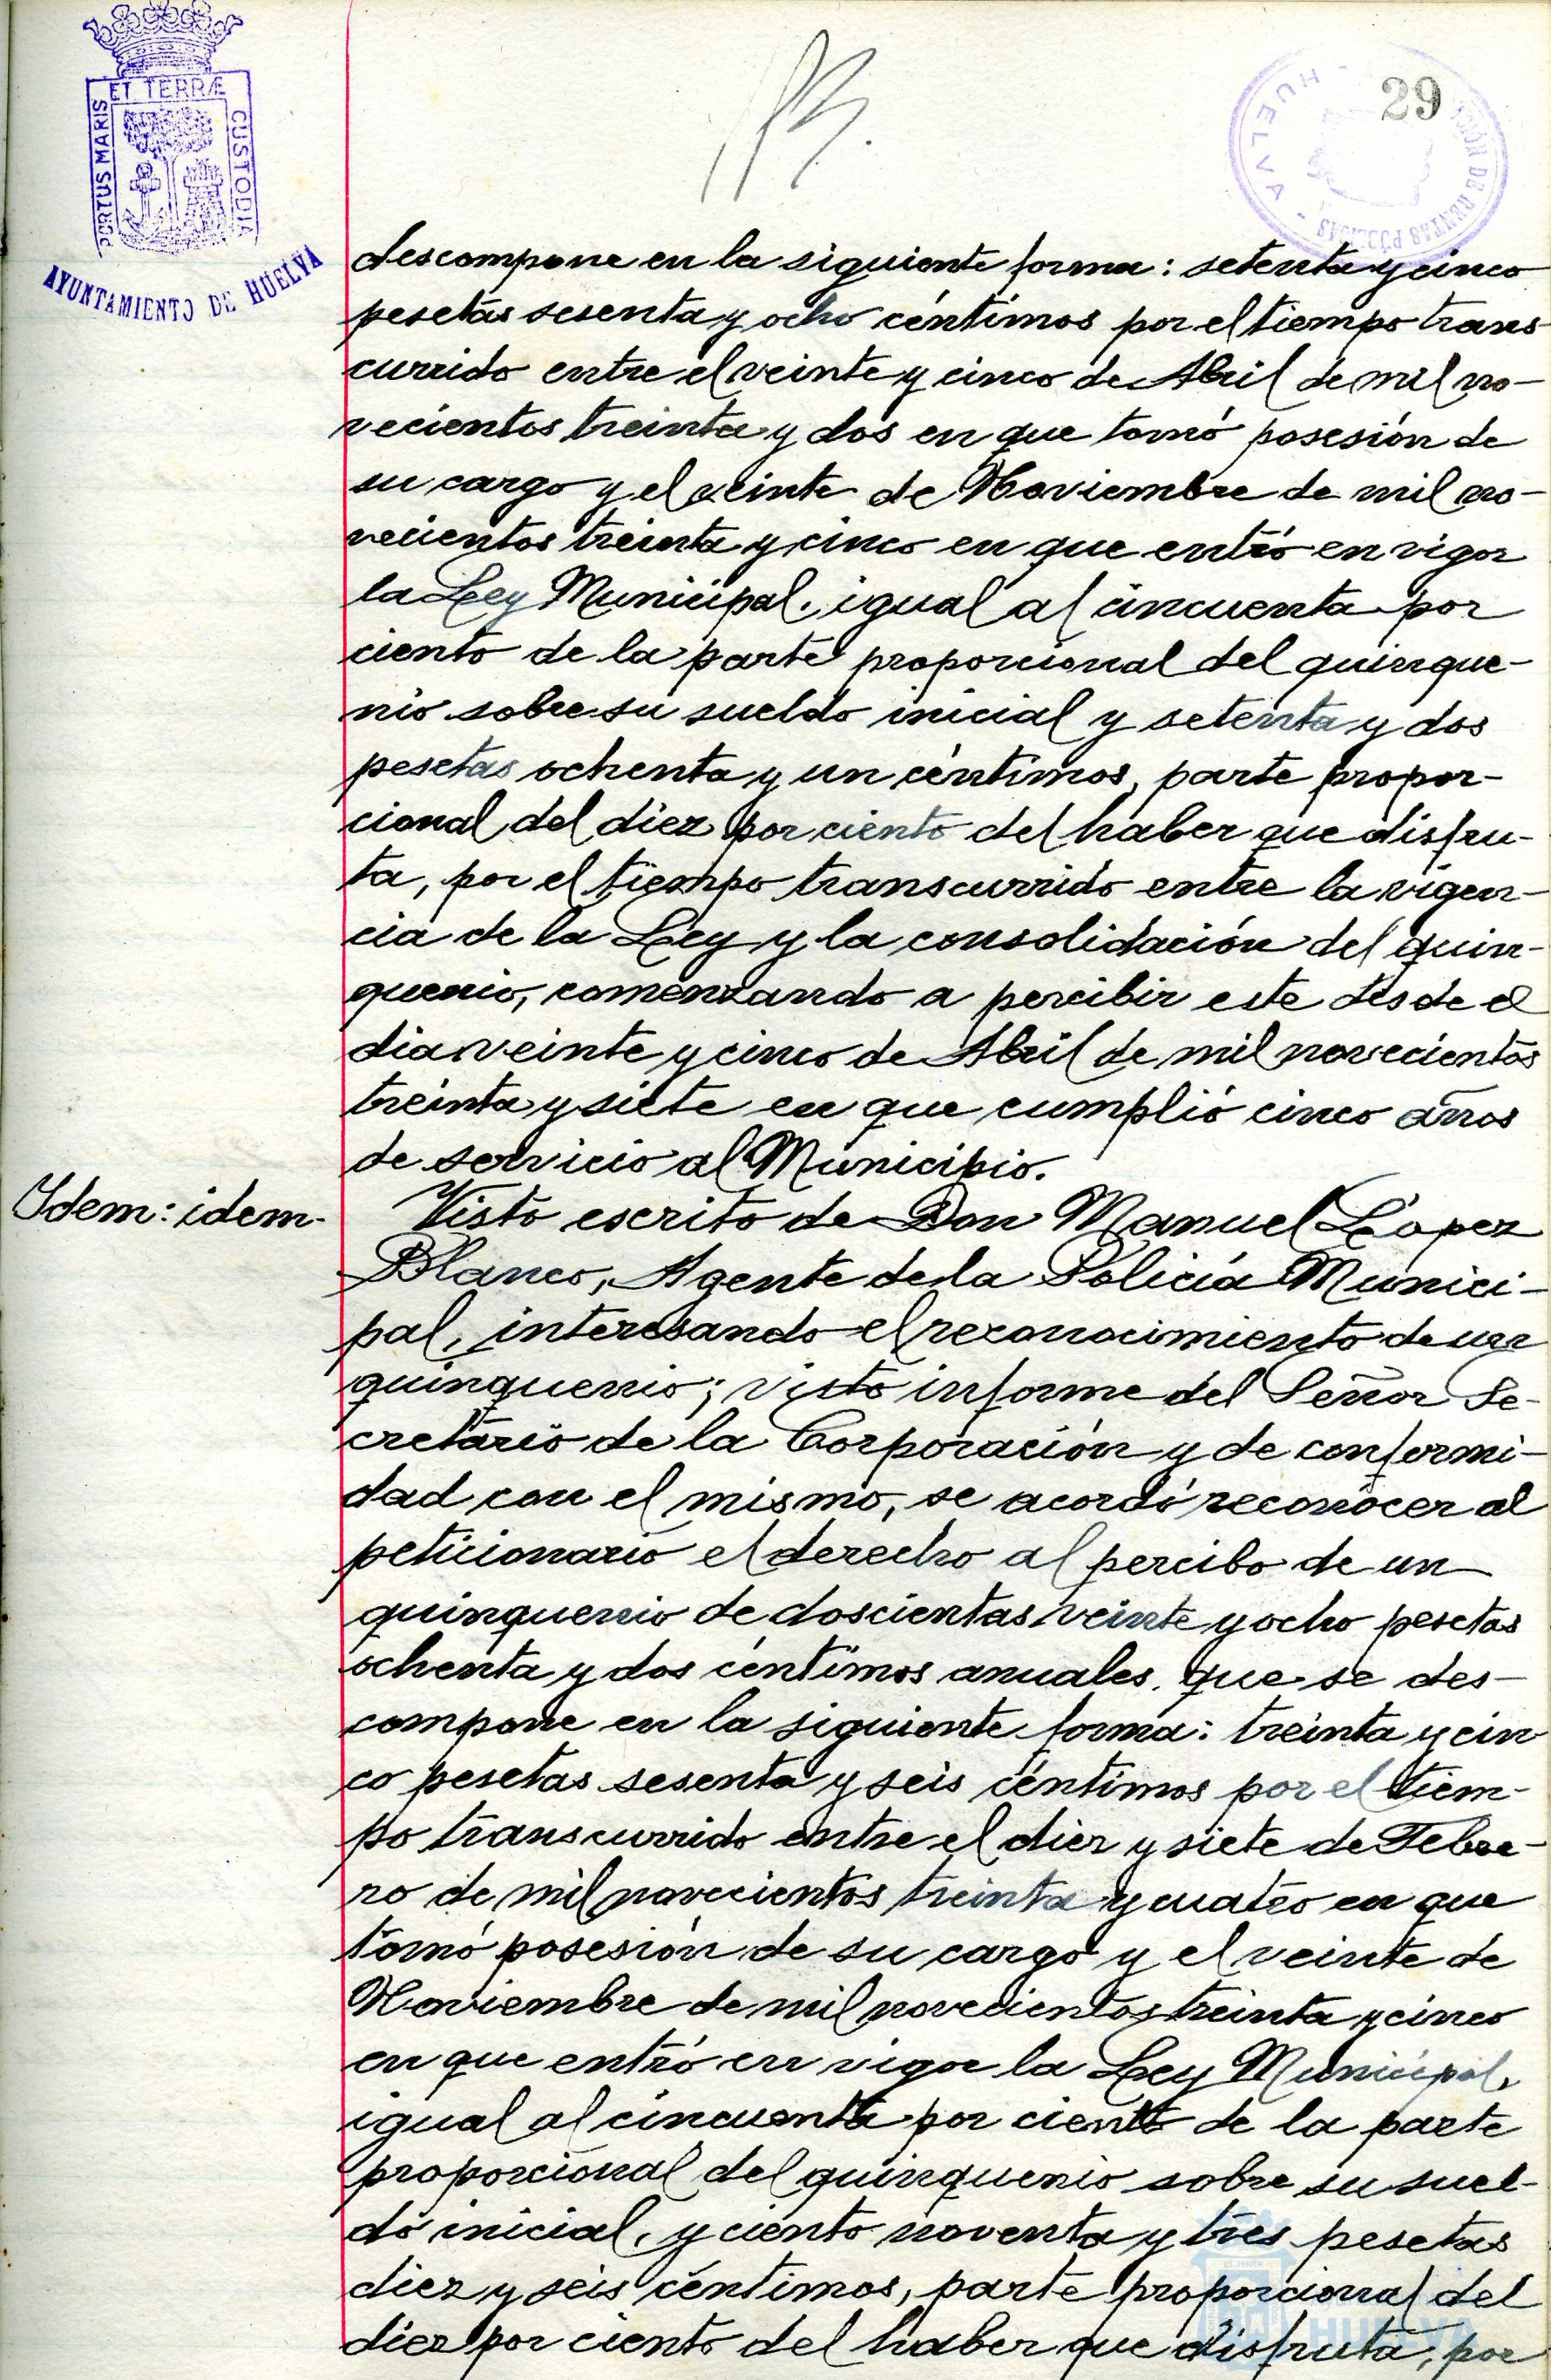 PORTUS MARIS ET TERRÆ CUSTODIA
AYUNTAMIENTO DE HUELVA
29
HUELVA
descompone en la siguiente forma: setenta y cinco
pesetas sesenta y ocho céntimos por el tiempo trans
currido entre el veinte y cinco de Abril de mil no-
vecientos treinta y dos en que tomó posesión de
su cargo y el veinte de Noviembre de mil no-
vecientos treinta y cinco en que entró en vigor
la Ley Municipal, igual al cincuenta por
ciento de la parte proporcional del quinque-
nio sobre su sueldo inicial y setenta y dos
pesetas ochenta y un céntimos, parte propor-
cional del diez por ciento del haber que disfru-
ta, por el tiempo transcurrido entre la vigen-
cia de la Ley y la consolidación del quin-
quenio, comenzando a percibir este desde el
dia veinte y cinco de Abril de mil novecientos
treinta y siete en que cumplió cinco años
de servicio al Municipio.
Idem: idem.
Visto escrito de Don Manuel López
Blanco, Agente de la Policía Munici-
pal, interesando el reconocimiento de un
quinquenio; visto informe del Señor Se-
cretario de la Corporación y de conformi-
dad con el mismo, se acordó reconocer al
peticionario el derecho al percibo de un
quinquenio de doscientas veinte y ocho pesetas
ochenta y dos céntimos anuales, que se des-
compone en la siguiente forma: treinta y cin
co pesetas sesenta y seis céntimos por el tiem-
po transcurrido entre el diez y siete de Febre-
ro de mil novecientos treinta y cuatro en que
tomó posesión de su cargo y el veinte de
Noviembre de mil novecientos treinta y cinco
en que entró en vigor la Ley Municipal,
igual al cincuenta por ciento de la parte
proporcional del quinquenio sobre su suel-
do inicial, y ciento noventa y tres pesetas
diez y seis céntimos, parte proporcional del
diez por ciento del haber que disfruta, por
HUELVA